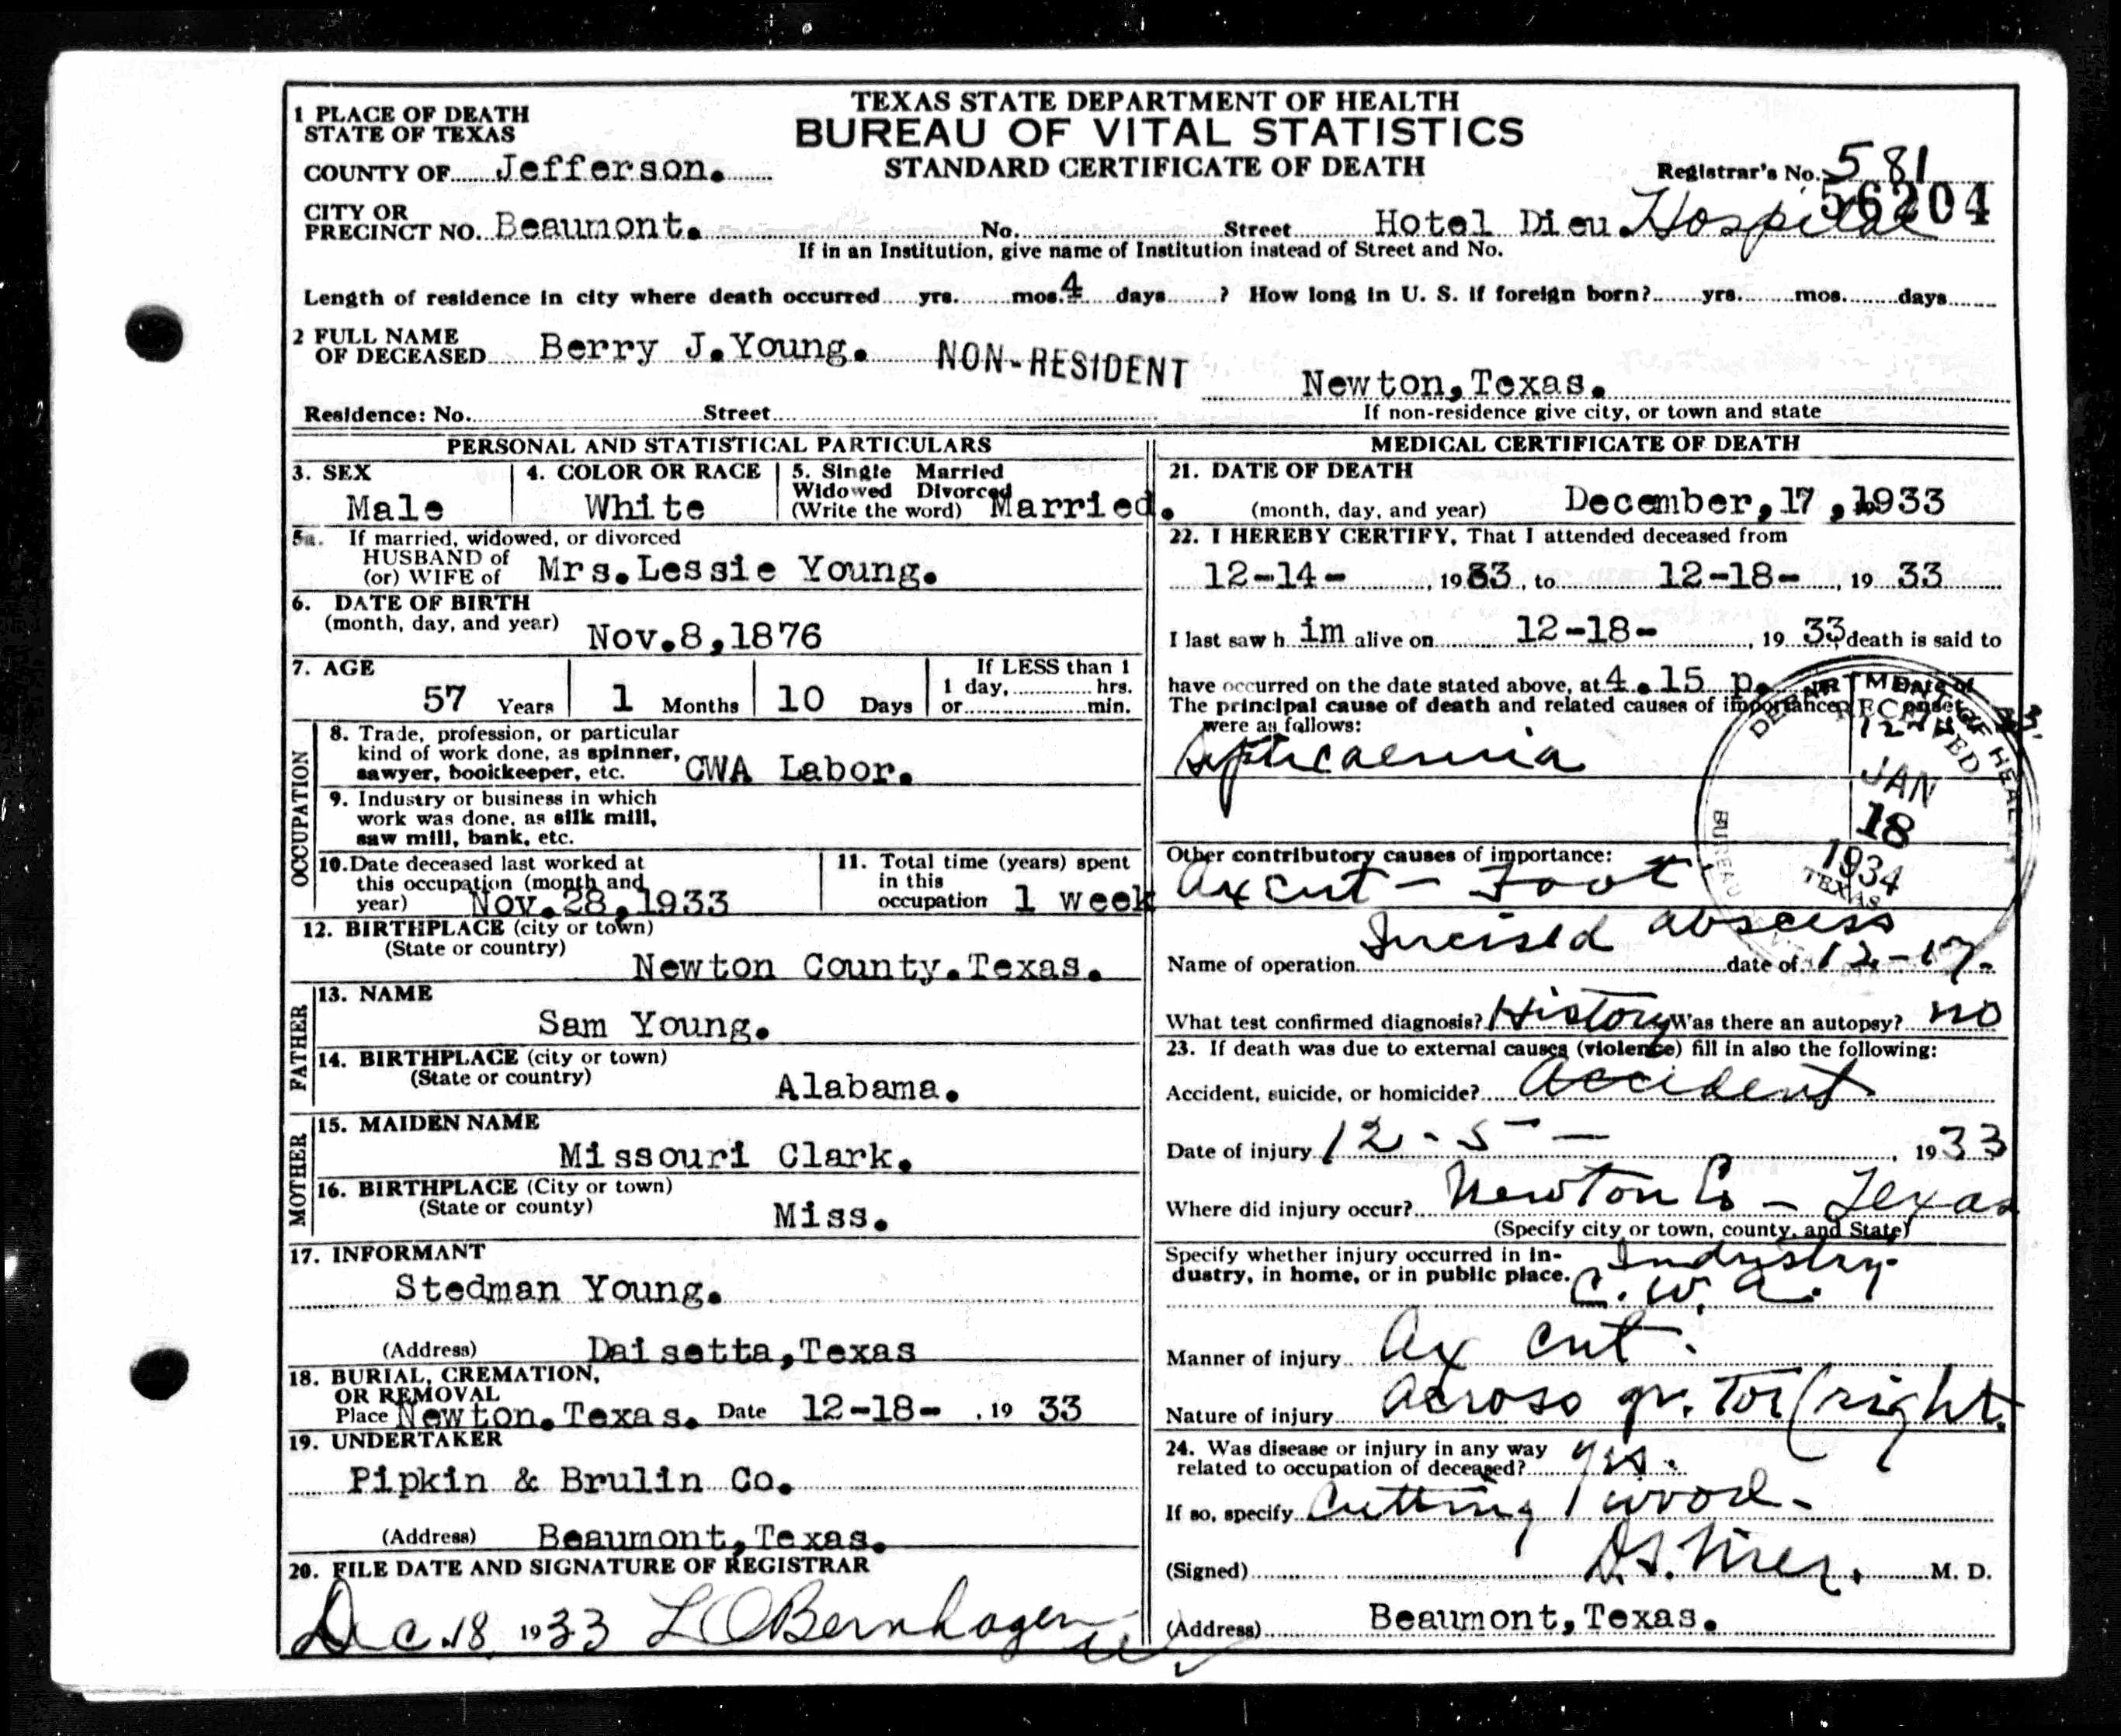 1 PLACE OF DEATH
STATE OF TEXAS
TEXAS STATE DEPARTMENT OF HEALTH
BUREAU OF VITAL STATISTICS
STANDARD CERTIFICATE OF DEATH
COUNTY OF Jefferson.
Registrar's No. 581
56204
CITY OR
PRECINCT NO. Beaumont. No. Street Hotel Dieu. Hospital
If in an Institution, give name of Institution instead of Street and No.
Length of residence in city where death occurred yrs. mos. 4 days ? How long in U. S. if foreign born? yrs. mos. days
2 FULL NAME
OF DECEASED Berry J.Young. NON-RESIDENT
Newton,Texas.
Residence: No. Street If non-residence give city, or town and state
PERSONAL AND STATISTICAL PARTICULARS
3. SEX
Male
4. COLOR OR RACE
White
5. Single Married
Widowed Divorced
(Write the word) Married.
5a. If married, widowed, or divorced
HUSBAND of
(or) WIFE of Mrs.Lessie Young.
6. DATE OF BIRTH
(month, day, and year) Nov.8,1876
7. AGE
57 Years 1 Months 10 Days
If LESS than 1
1 day, hrs.
or min.
OCCUPATION
8. Trade, profession, or particular
kind of work done, as spinner,
sawyer, bookkeeper, etc. CWA Labor.
9. Industry or business in which
work was done, as silk mill,
saw mill, bank, etc.
10. Date deceased last worked at
this occupation (month and
year) Nov.28,1933
11. Total time (years) spent
in this
occupation 1 week
12. BIRTHPLACE (city or town)
(State or country) Newton County.Texas.
FATHER
13. NAME
Sam Young.
14. BIRTHPLACE (city or town)
(State or country) Alabama.
MOTHER
15. MAIDEN NAME
Missouri Clark.
16. BIRTHPLACE (City or town)
(State or county) Miss.
17. INFORMANT
Stedman Young.
(Address) Daisetta,Texas
18. BURIAL, CREMATION,
OR REMOVAL
Place Newton.Texas. Date 12-18- , 19 33
19. UNDERTAKER
Pipkin & Brulin Co.
(Address) Beaumont,Texas.
20. FILE DATE AND SIGNATURE OF REGISTRAR
Dec.18, 1933 L O Bernhagen
MEDICAL CERTIFICATE OF DEATH
21. DATE OF DEATH
(month, day, and year) December,17,1933
22. I HEREBY CERTIFY, That I attended deceased from
12-14- , 1933, to 12-18- , 19 33
I last saw h im alive on 12-18- , 19 33, death is said to
have occurred on the date stated above, at 4.15 p.
The principal cause of death and related causes of importance
were as follows:
Date of
onset
Septicaemia
DEPARTMENT OF HEALTH
RECEIVED
JAN
18
1934
TEXAS
BUREAU
Other contributory causes of importance:
Ax cut - Foot
Incised abscess
Name of operation date of 12-17-
What test confirmed diagnosis? History Was there an autopsy? no
23. If death was due to external causes (violence) fill in also the following:
Accident, suicide, or homicide? Accident
Date of injury 12-5- , 1933
Where did injury occur? Newton Co - Texas
(Specify city or town, county, and State)
Specify whether injury occurred in in-
dustry, in home, or in public place. Industry
C.W.A.
Manner of injury Ax cut.
Nature of injury across gr. toe (right.
24. Was disease or injury in any way
related to occupation of deceased? yes.
If so, specify Cutting wood-
(Signed) M. D.
(Address) Beaumont,Texas.